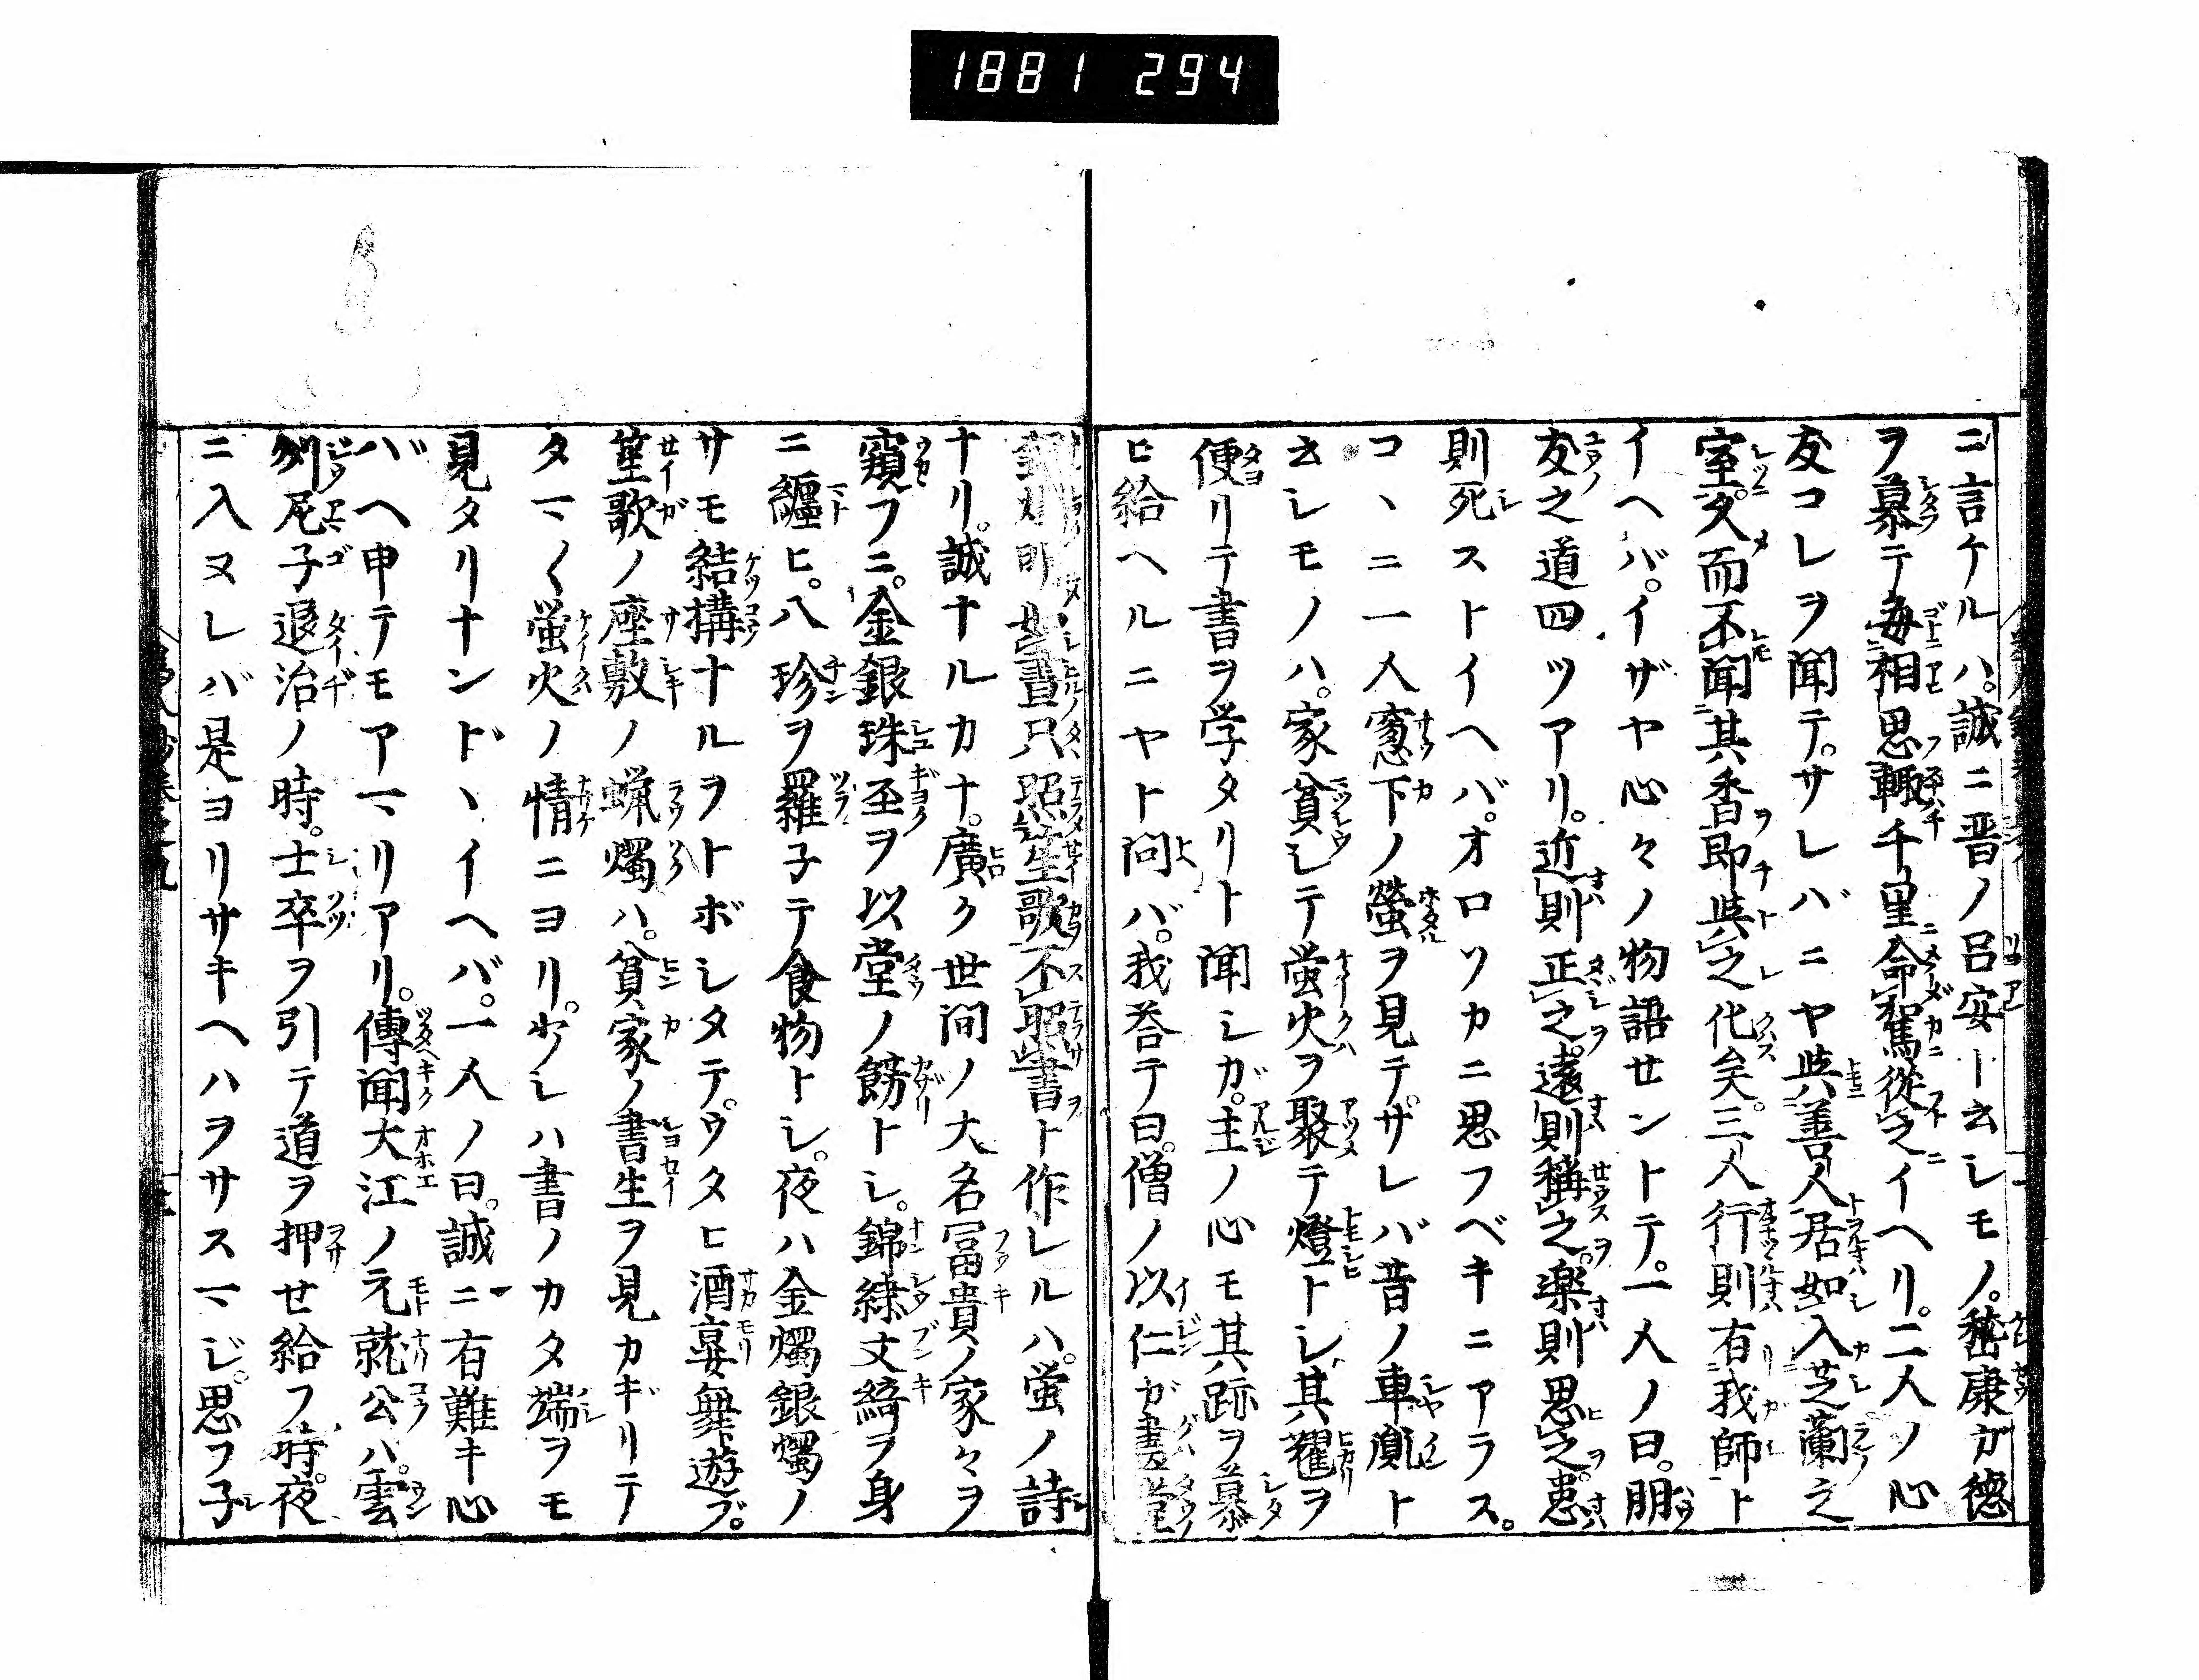 1881 294
ニ言ケルハ。誠ニ晋ノ呂安ト云レモノ。嵆康ガ徳
ヲ慕テ毎相思輙千里命駕從之イヘリ。二人ノ心
友コレヲ聞テ。サレバニヤ與善人居如入芝蘭之
室久而不聞其香即與之化矣。三人行則有我師ト
イヘバ。イザヤ心々ノ物語セントテ。一人ノ曰。朋
友之道四ツアリ。近則正之。遠則稱之。楽則思之。患
則死ストイヘバ。オロソカニ思フベキニアラス。
コヽニ一人窓下ノ螢ヲ見テ。サレバ昔ノ車胤ト
云レモノハ。家貧レテ螢火ヲ聚テ燈トレ其耀ヲ
便リテ書ヲ学タリト聞シガ。主ノ心モ其跡ヲ慕
ヒ給ヘルニヤト問バ。我荅テ曰。僧ノ以仁ガ
只照笙歌不照書ト作レルハ。螢ノ詩
ナリ。誠ナルカナ。廣ク世間ノ大名冨貴ノ家々ヲ
窺フニ。金銀珠玉ヲ以堂ノ餝トレ。錦綉文綺ヲ身
ニ纏ヒ。八珍ヲ羅子テ食物トレ。夜ハ金燭銀燭ノ
サモ結構ナルヲトボレタテ。ウタヒ酒宴舞遊ブ。
笙歌ノ座敷ノ蝋燭ハ。貧家ノ書生ヲ見カギリテ
タマ〱螢火ノ情ニヨリ。少レハ書ノカタ端ヲモ
見タリナンドヽイヘバ。一人ノ曰。誠ニ有難キ心
バヘ申テモアマリアリ。傳聞大江ノ元就公ハ。雲
州尼子退治ノ時。士卒ヲ引テ道ヲ押せ給フ時。夜
ニ入ヌレバ是ヨリサキヘハヲサスマジ。思フ子